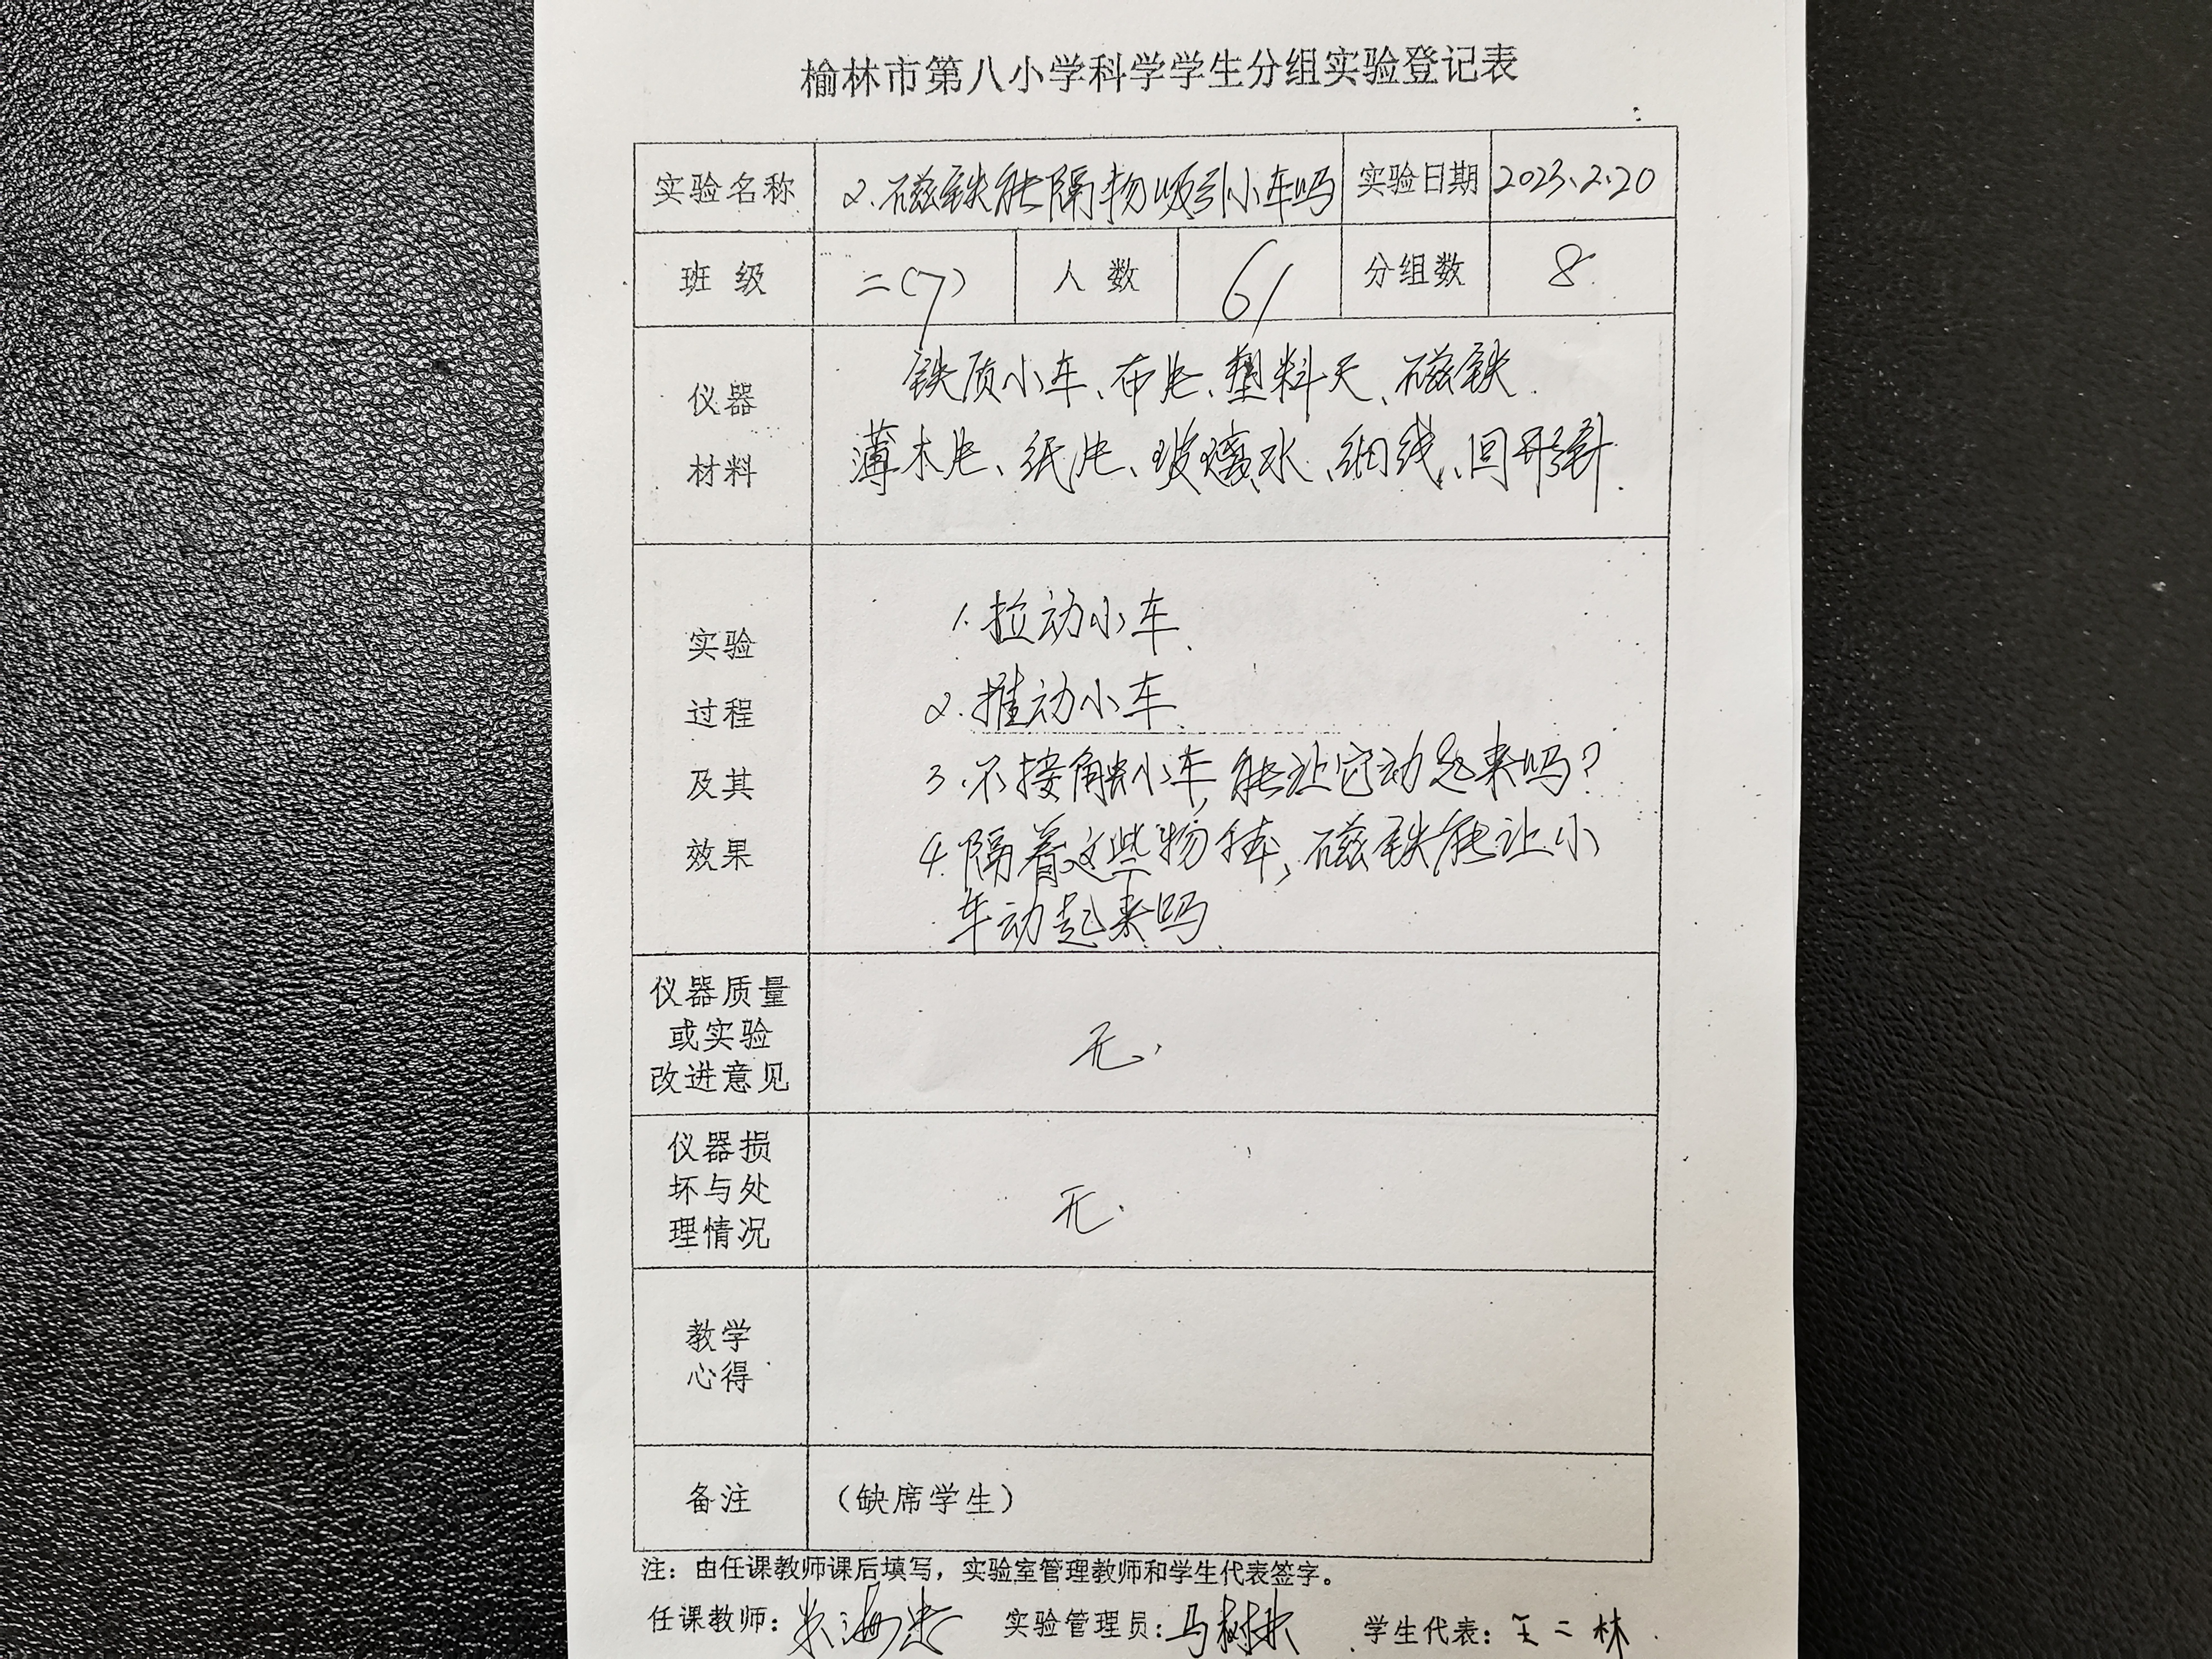 榆林市第八小学科学学生分组实验登记表
实验名称 2.磁铁能隔物吸引小车吗 实验日期 2023.2.20
班级 二(7) 人数 61 分组数 8
仪器
材料
铁质小车、布片、塑料尺、磁铁
薄木片、纸片、玻璃水、细线、回形针.
实验
过程
及其
效果
1.拉动小车
2.推动小车
3.不接触小车,能让它动起来吗?
4.隔着这些物体,磁铁能让小
车动起来吗
仪器质量
或实验
改进意见
无.
仪器损
坏与处
理情况
无.
教学
心得
备注 (缺席学生)
注：由任课教师课后填写，实验室管理教师和学生代表签字。
任课教师: 实验管理员: 马树林 学生代表: 王二林